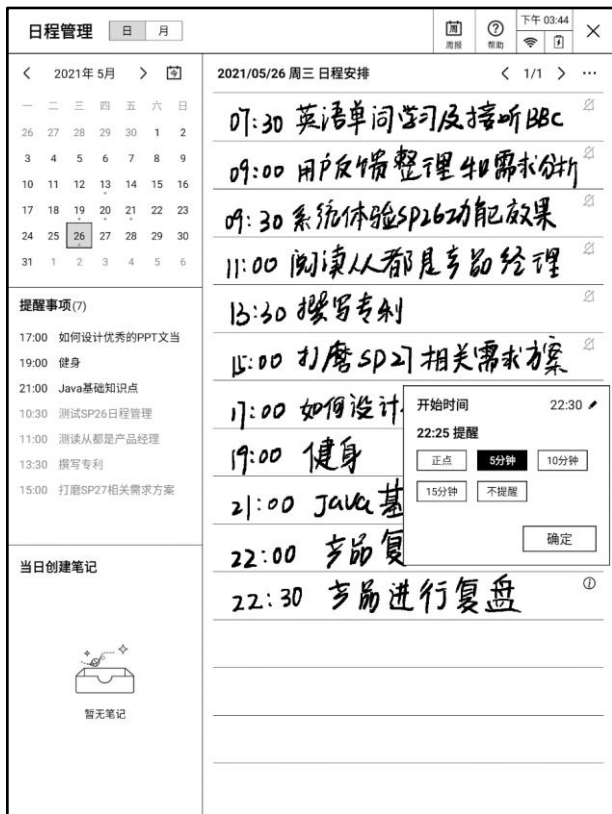 日程管理 日 月 周 周报 ? 帮助 下午 03:44
2021年 5月 今
一 二 三 四 五 六 日
26 27 28 29 30 1 2
3 4 5 6 7 8 9
10 11 12 13 14 15 16
17 18 19 20 21 22 23
24 25 26 27 28 29 30
31 1 2 3 4 5 6
提醒事项(7)
17:00 如何设计优秀的PPT文当
19:00 健身
21:00 Java基础知识点
10:30 测试SP26日程管理
11:00 测读从都是产品经理
13:30 撰写专利
15:00 打磨SP27相关需求方案
当日创建笔记
暂无笔记
2021/05/26 周三 日程安排 1/1
07:30 英语单词学习及接听BBC
09:00 用户反馈整理和需求分析
09:30 系统体验SP26功能效果
11:00 阅读人人都是产品经理
13:30 撰写专利
15:00 打磨SP27相关需求方案
17:00 如何设计
19:00 健身
21:00 Java基
22:00 产品复
22:30 产品进行复盘
开始时间 22:30
22:25 提醒
正点 5分钟 10分钟
15分钟 不提醒
确定